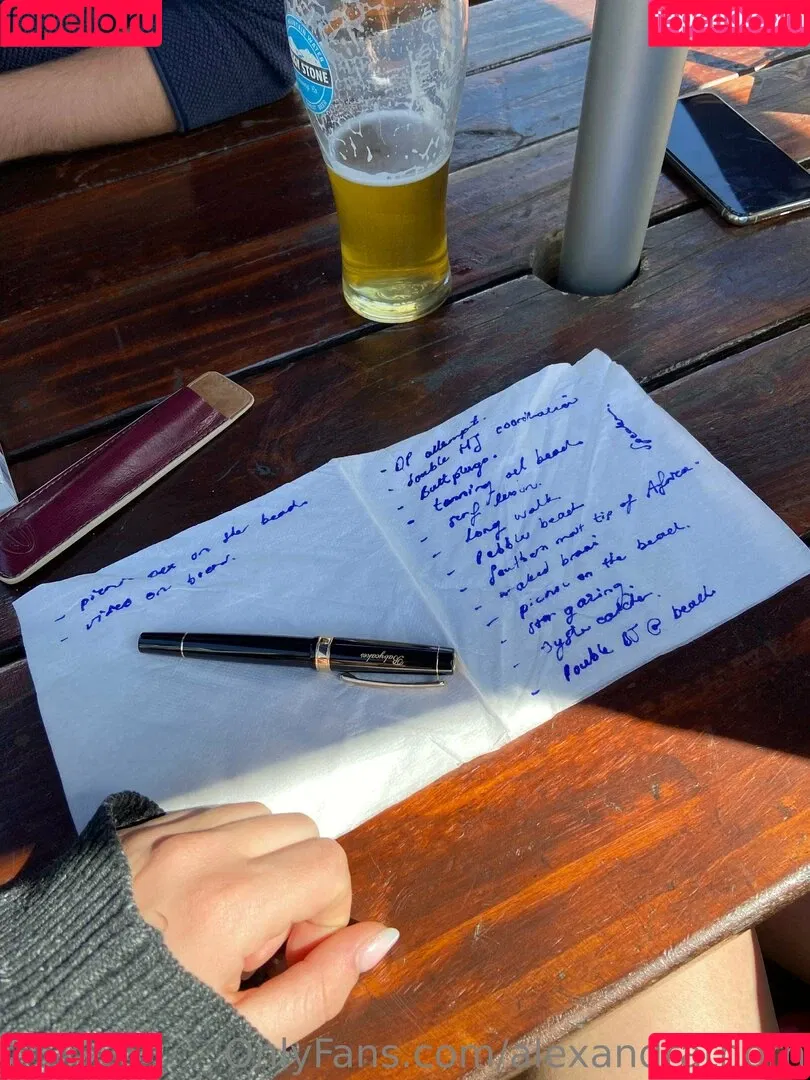 fapello.ru
fapello.ru
STONE
- picnic sex on the beach
- video on boat.
- DP attempt.
- double HJ coordination
- Buttplugs.
- tanning at beach
- surf lesson.
- Long walk
- Pebble beach
- Southern most tip of Africa.
- naked braai
- picnic on the beach.
- star gazing.
- oyster catcher.
- Double BJ @ beach
Babycakes
fapello.ru
OnlyFans.com/alexand
fapello.ru